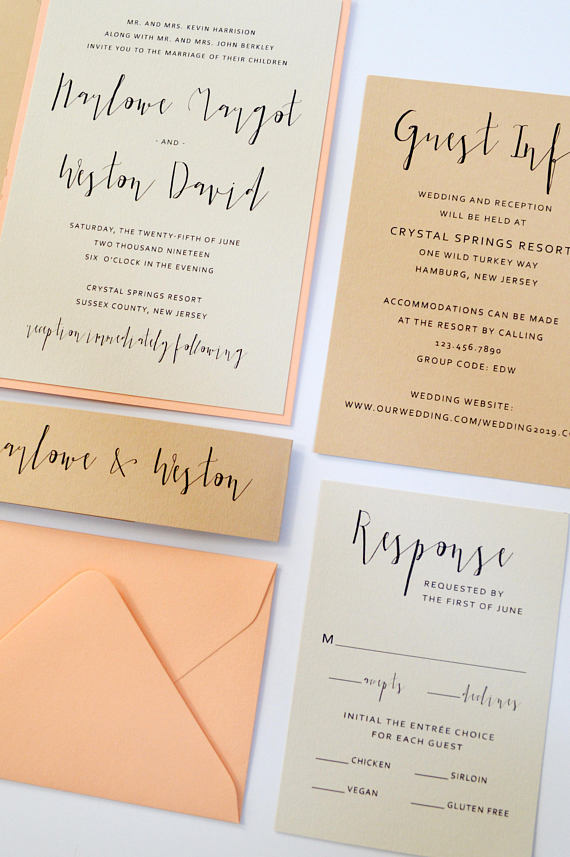 MR. AND MRS. KEVIN HARRISION
ALONG WITH MR. AND MRS. JOHN BERKLEY
INVITE YOU TO THE MARRIAGE OF THEIR CHILDREN
Harlowe Margot
- AND -
Weston David
SATURDAY, THE TWENTY-FIFTH OF JUNE
TWO THOUSAND NINETEEN
SIX O'CLOCK IN THE EVENING
CRYSTAL SPRINGS RESORT
SUSSEX COUNTY, NEW JERSEY
reception immediately following
arlowe & Weston
Guest Inf
WEDDING AND RECEPTION
WILL BE HELD AT
CRYSTAL SPRINGS RESORT
ONE WILD TURKEY WAY
HAMBURG, NEW JERSEY
ACCOMMODATIONS CAN BE MADE
AT THE RESORT BY CALLING
123.456.7890
GROUP CODE: EDW
WEDDING WEBSITE:
WWW.OURWEDDING.COM/WEDDING2019.CO
Response
REQUESTED BY
THE FIRST OF JUNE
M
accepts declines
INITIAL THE ENTRÉE CHOICE
FOR EACH GUEST
CHICKEN SIRLOIN
VEGAN GLUTEN FREE